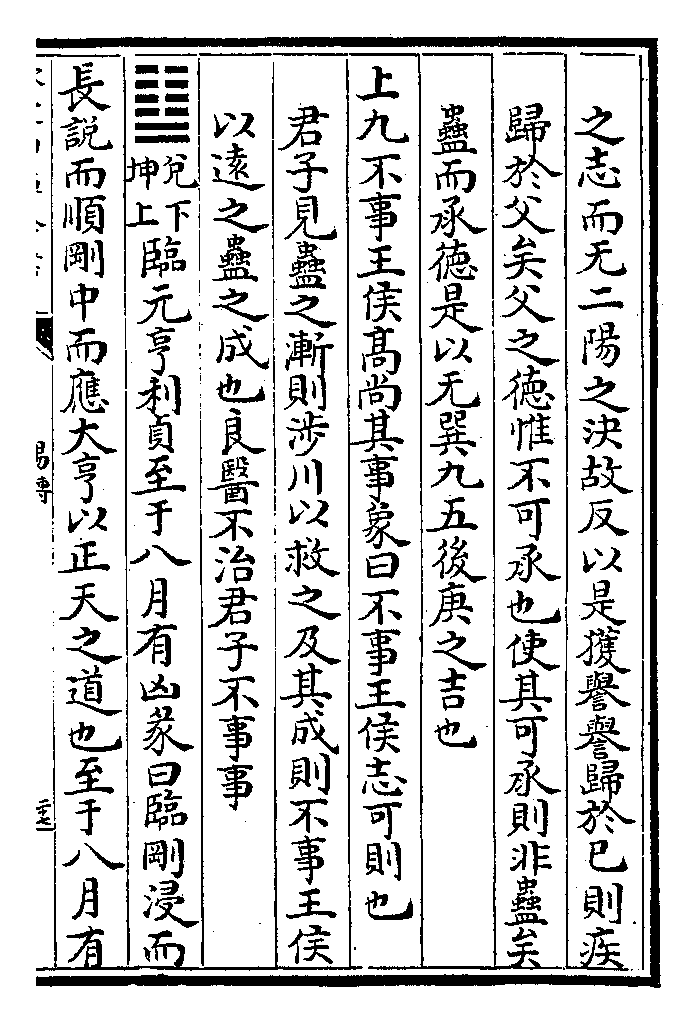 之志而无二陽之決故反以是獲譽譽歸於已則疾
歸於父矣父之德惟不可承也使其可承則非蠱矣
蠱而承德是以无巽九五後庚之吉也
上九不事王侯高尚其事象曰不事王侯志可則也
君子見蠱之漸則涉川以救之及其成則不事王侯
以遠之蠱之成也良醫不治君子不事事
䷒兌下坤上臨元亨利貞至于八月有凶彖曰臨剛浸而
長説而順剛中而應大亨以正天之道也至于八月有
易傳